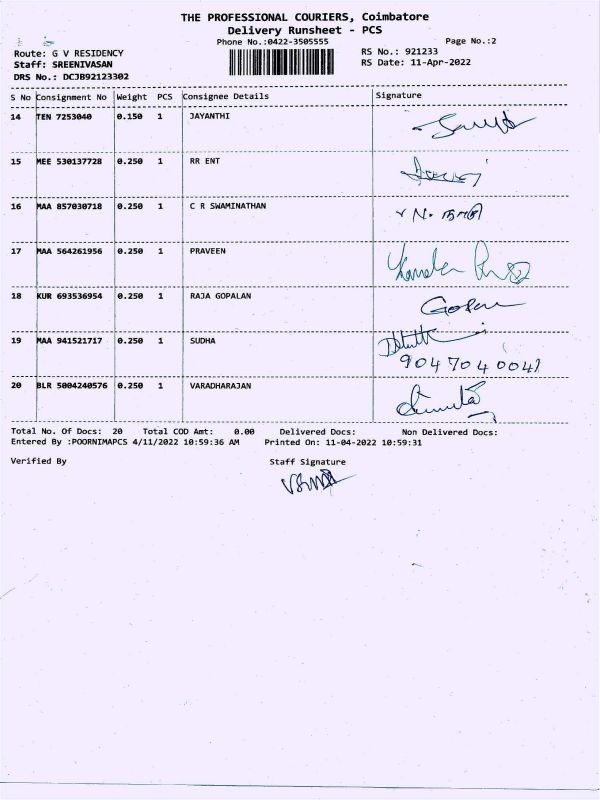 THE PROFESSIONAL COURIERS, Coimbatore
Delivery Runsheet - PCS
Phone No.:0422-3505555 Page No.:2
Route: G V RESIDENCY RS No.: 921233
Staff: SREENIVASAN RS Date: 11-Apr-2022
DRS No.: DCJB92123302
S No Consignment No Weight PCS Consignee Details Signature
14 TEN 7253040 0.150 1 JAYANTHI
15 MEE 530137728 0.250 1 RR ENT
16 MAA 857030718 0.250 1 C R SWAMINATHAN
17 MAA 564261956 0.250 1 PRAVEEN
18 KUR 693536954 0.250 1 RAJA GOPALAN
19 MAA 941521717 0.250 1 SUDHA
9047040041
20 BLR 5004240576 0.250 1 VARADHARAJAN
Total No. Of Docs: 20 Total COD Amt: 0.00 Delivered Docs: Non Delivered Docs:
Entered By :POORNIMAPCS 4/11/2022 10:59:36 AM Printed On: 11-04-2022 10:59:31
Verified By Staff Signature